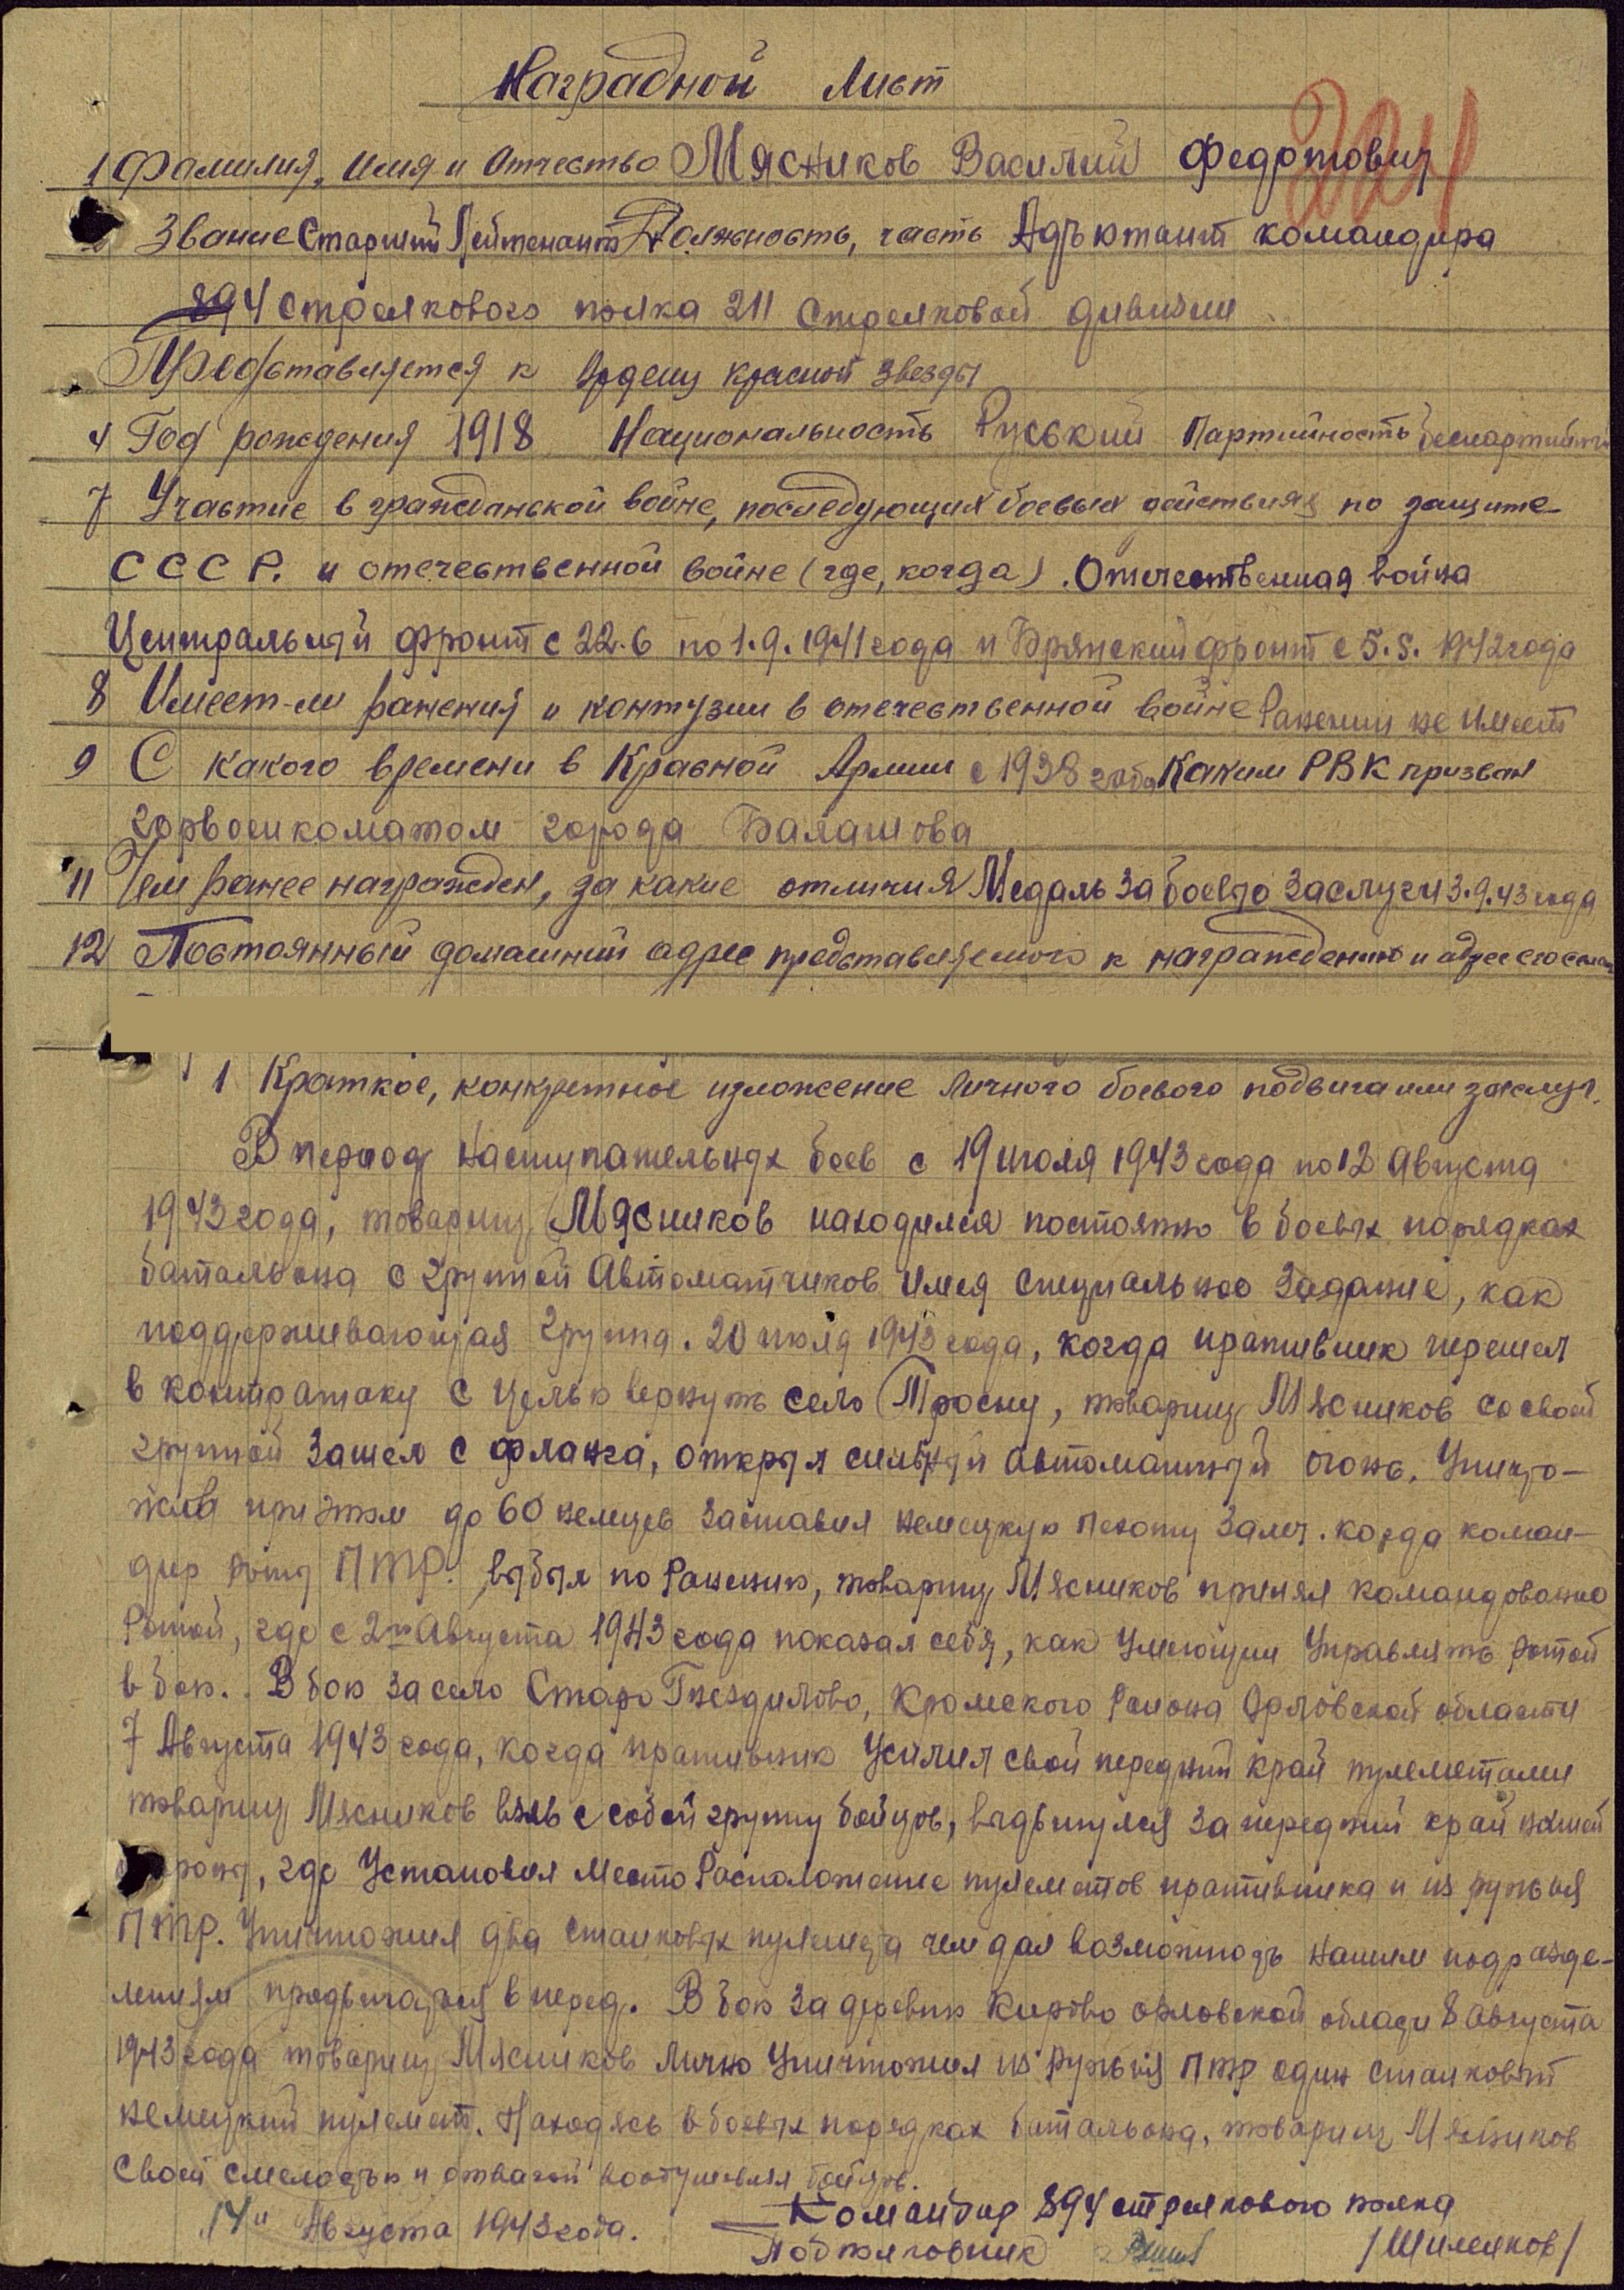 Наградной лист
224
1 Фамилия, имя и отчество Мясников Василий Федотович
Звание Старший Лейтенант Должность, часть Адъютант командира
894 стрелкового полка 211 стрелковой дивизии
Представляется к Ордену Красной Звезды
4 Год рождения 1918 Национальность Руський Партийность беспартийный
7 Участие в гражданской войне, последующих боевых действиях по защите
СССР. и отечественной войне (где, когда). Отечественная война
Центральный фронт с 22.6 по 1.9.1941 года и Брянский фронт с 5.5.1942 года
8 Имеет-ли ранения и контузии в отечественной войне Ранении не имеет
9 С какого времени в Красной Армии с 1938 года Каким РВК призван
горвоенкоматом города Балашова
11 Чем ранее награжден, за какие отличия Медаль За боевые Заслуги 3.9.43 года
12 Постоянный домашний адрес представляемого к награждению и адрес его семьи
1 Краткое, конкретное изложение личного боевого подвига или заслуг.
В период наступательных боев с 19 июля 1943 года по 12 Августа
1943 года, товарищ Мясников находился постоянно в боевых порядках
батальона с группой Автоматчиков имея специальное задание, как
поддерживающая группа. 20 июля 1943 года, когда противник перешел
в контратаку с целью вернуть село Тросну, товарищ Мясников со своей
группой зашел с фланга, открыл сильный автоматный огонь. Уничто-
жив при этом до 60 немцев заставил немецкую пехоту залеч. когда коман-
дир роты ПТР. выбыл по Ранению, товарищ Мясников принял командование
Ротой, где с 2го Августа 1943 года показал себя, как умеющий Управлять ротой
в бою. В бою за село Старо Гнездилово, Кромского Района Орловской области
7 Августа 1943 года, когда противник Усилил свой передний край пулеметами
товарищ Мясников взяв с собой группу бойцов, выдвинулся за передний край нашей
роны, где Установил место Расположение пулеметов противника и из ружья
ПТР. Уничтожил два станковых пулемета чем дал возможность нашим подразде-
лениям продвигаться вперед. В бою за деревню Кирово орловской области 8 Августа
1943 года товарищ Мясников лично Уничтожил из ружья ПТР один станковый
немецкий пулемет. Находясь в боевых порядках батальона, товарищ Мясников
Своей смелостью и отвагой воодушевлял бойцов.
"14" Августа 1943 года. Командир 894 стрелкового полка
Подполковник /Шиленков/